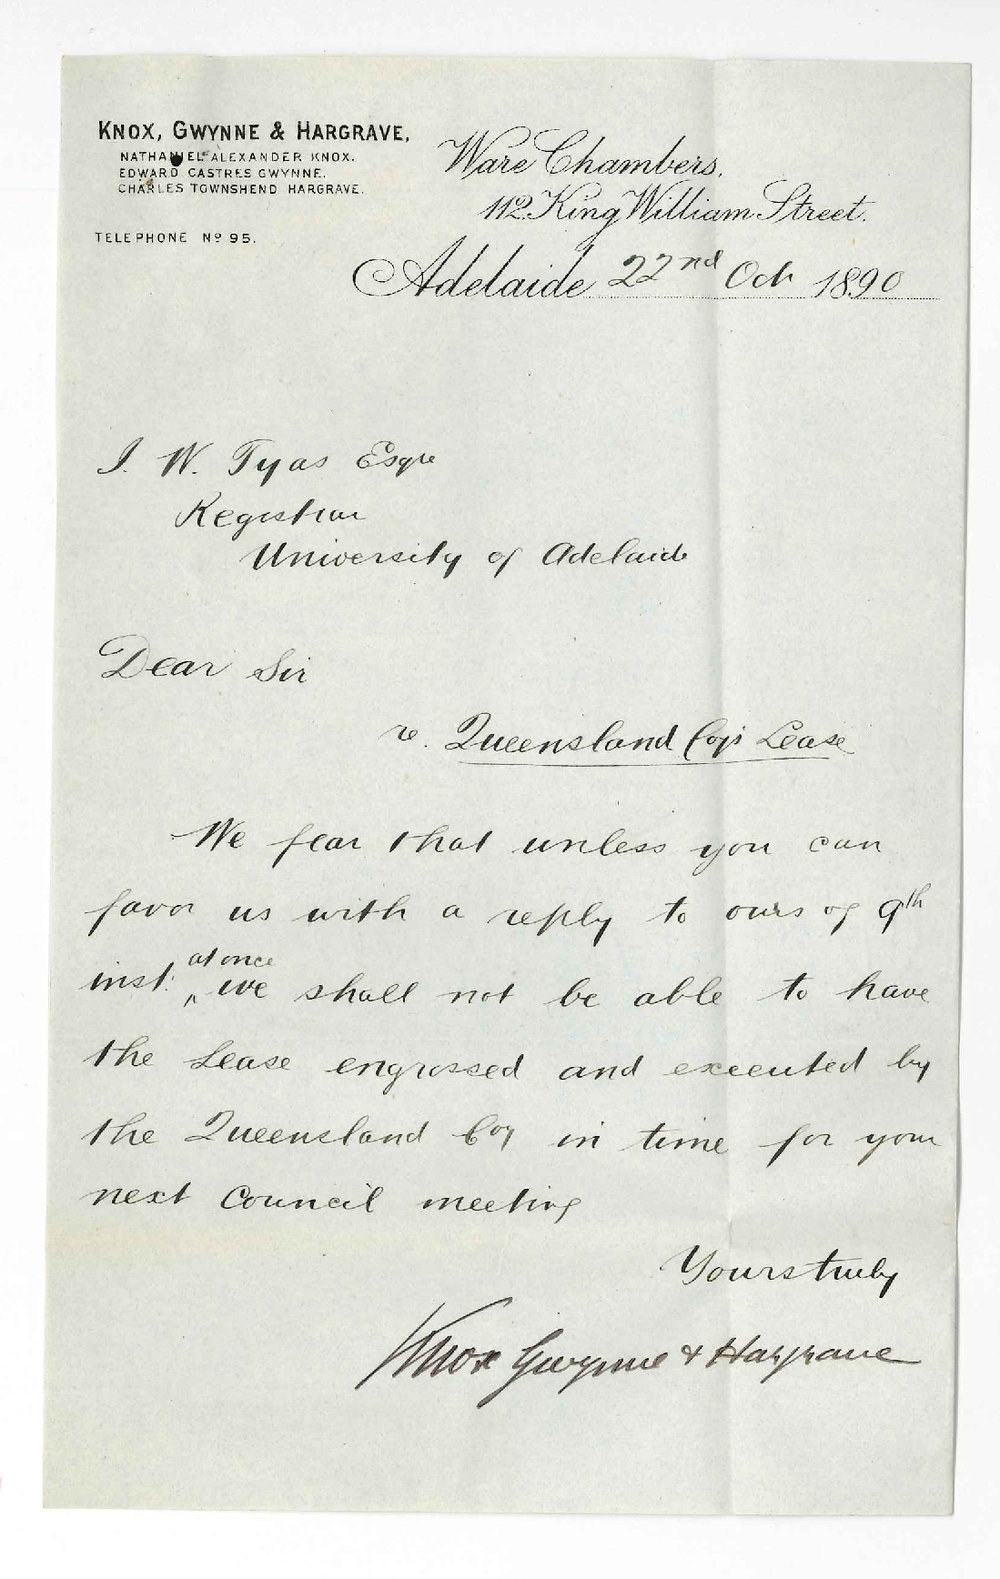 KNOX, GWYNNE & HARGRAVE,
NATHANIEL ALEXANDER KNOX.
EDWARD CASTRES GWYNNE.
CHARLES TOWNSHEND HARGRAVE.
TELEPHONE Nº 95.
Ware Chambers,
112 King William Street.
Adelaide 22nd Oct 1890
J. W. Tyas Esqre
Registrar
University of Adelaide
Dear Sir
re. Queensland Coy's Lease
We fear that unless you can
favor us with a reply to ours of 9th
at once
inst: ^ we shall not be able to have
the Lease engrossed and executed by
the Queensland Coy in time for your
next Council meeting
Yours truly
Knox Gwynne & Hargrave